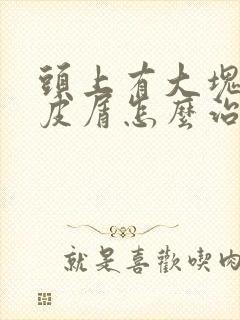 頭上有大塊
皮屑怎麼治
就是喜歡喫肉